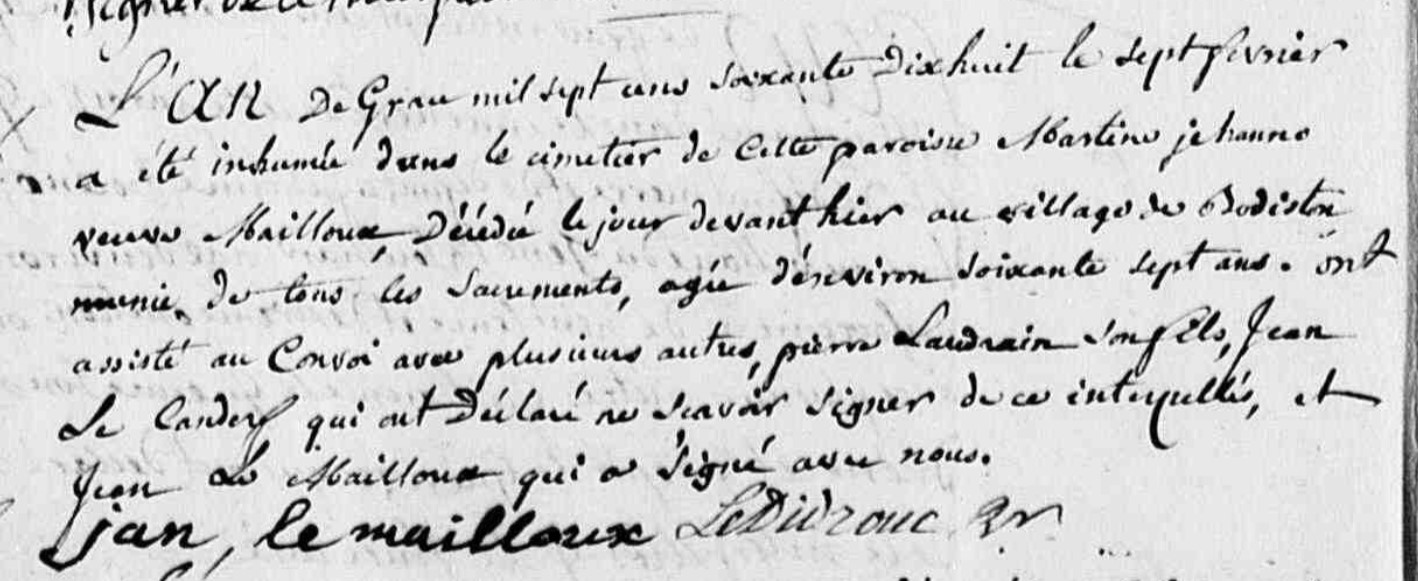 L'an De Grace mil sept cens soixante Dixhuit le sept fevrier
a été inhumée dans le cimetier de Cette paroisse Martine jehanno
veuve Mailloux, Décédée le jour devant hier au village de Bodiston
munie de tous les Sacrements, agée d'environ soixante sept ans. ont
assisté au Convoi avec plusieurs autres, pierre Laudrain son fils, Jean
Le Canderf qui ont Déclaré ne scavoir signer de ce interpellés, et
Jean Le Mailloux qui a signé avec nous.
jan, le mailloux Le Didrouc